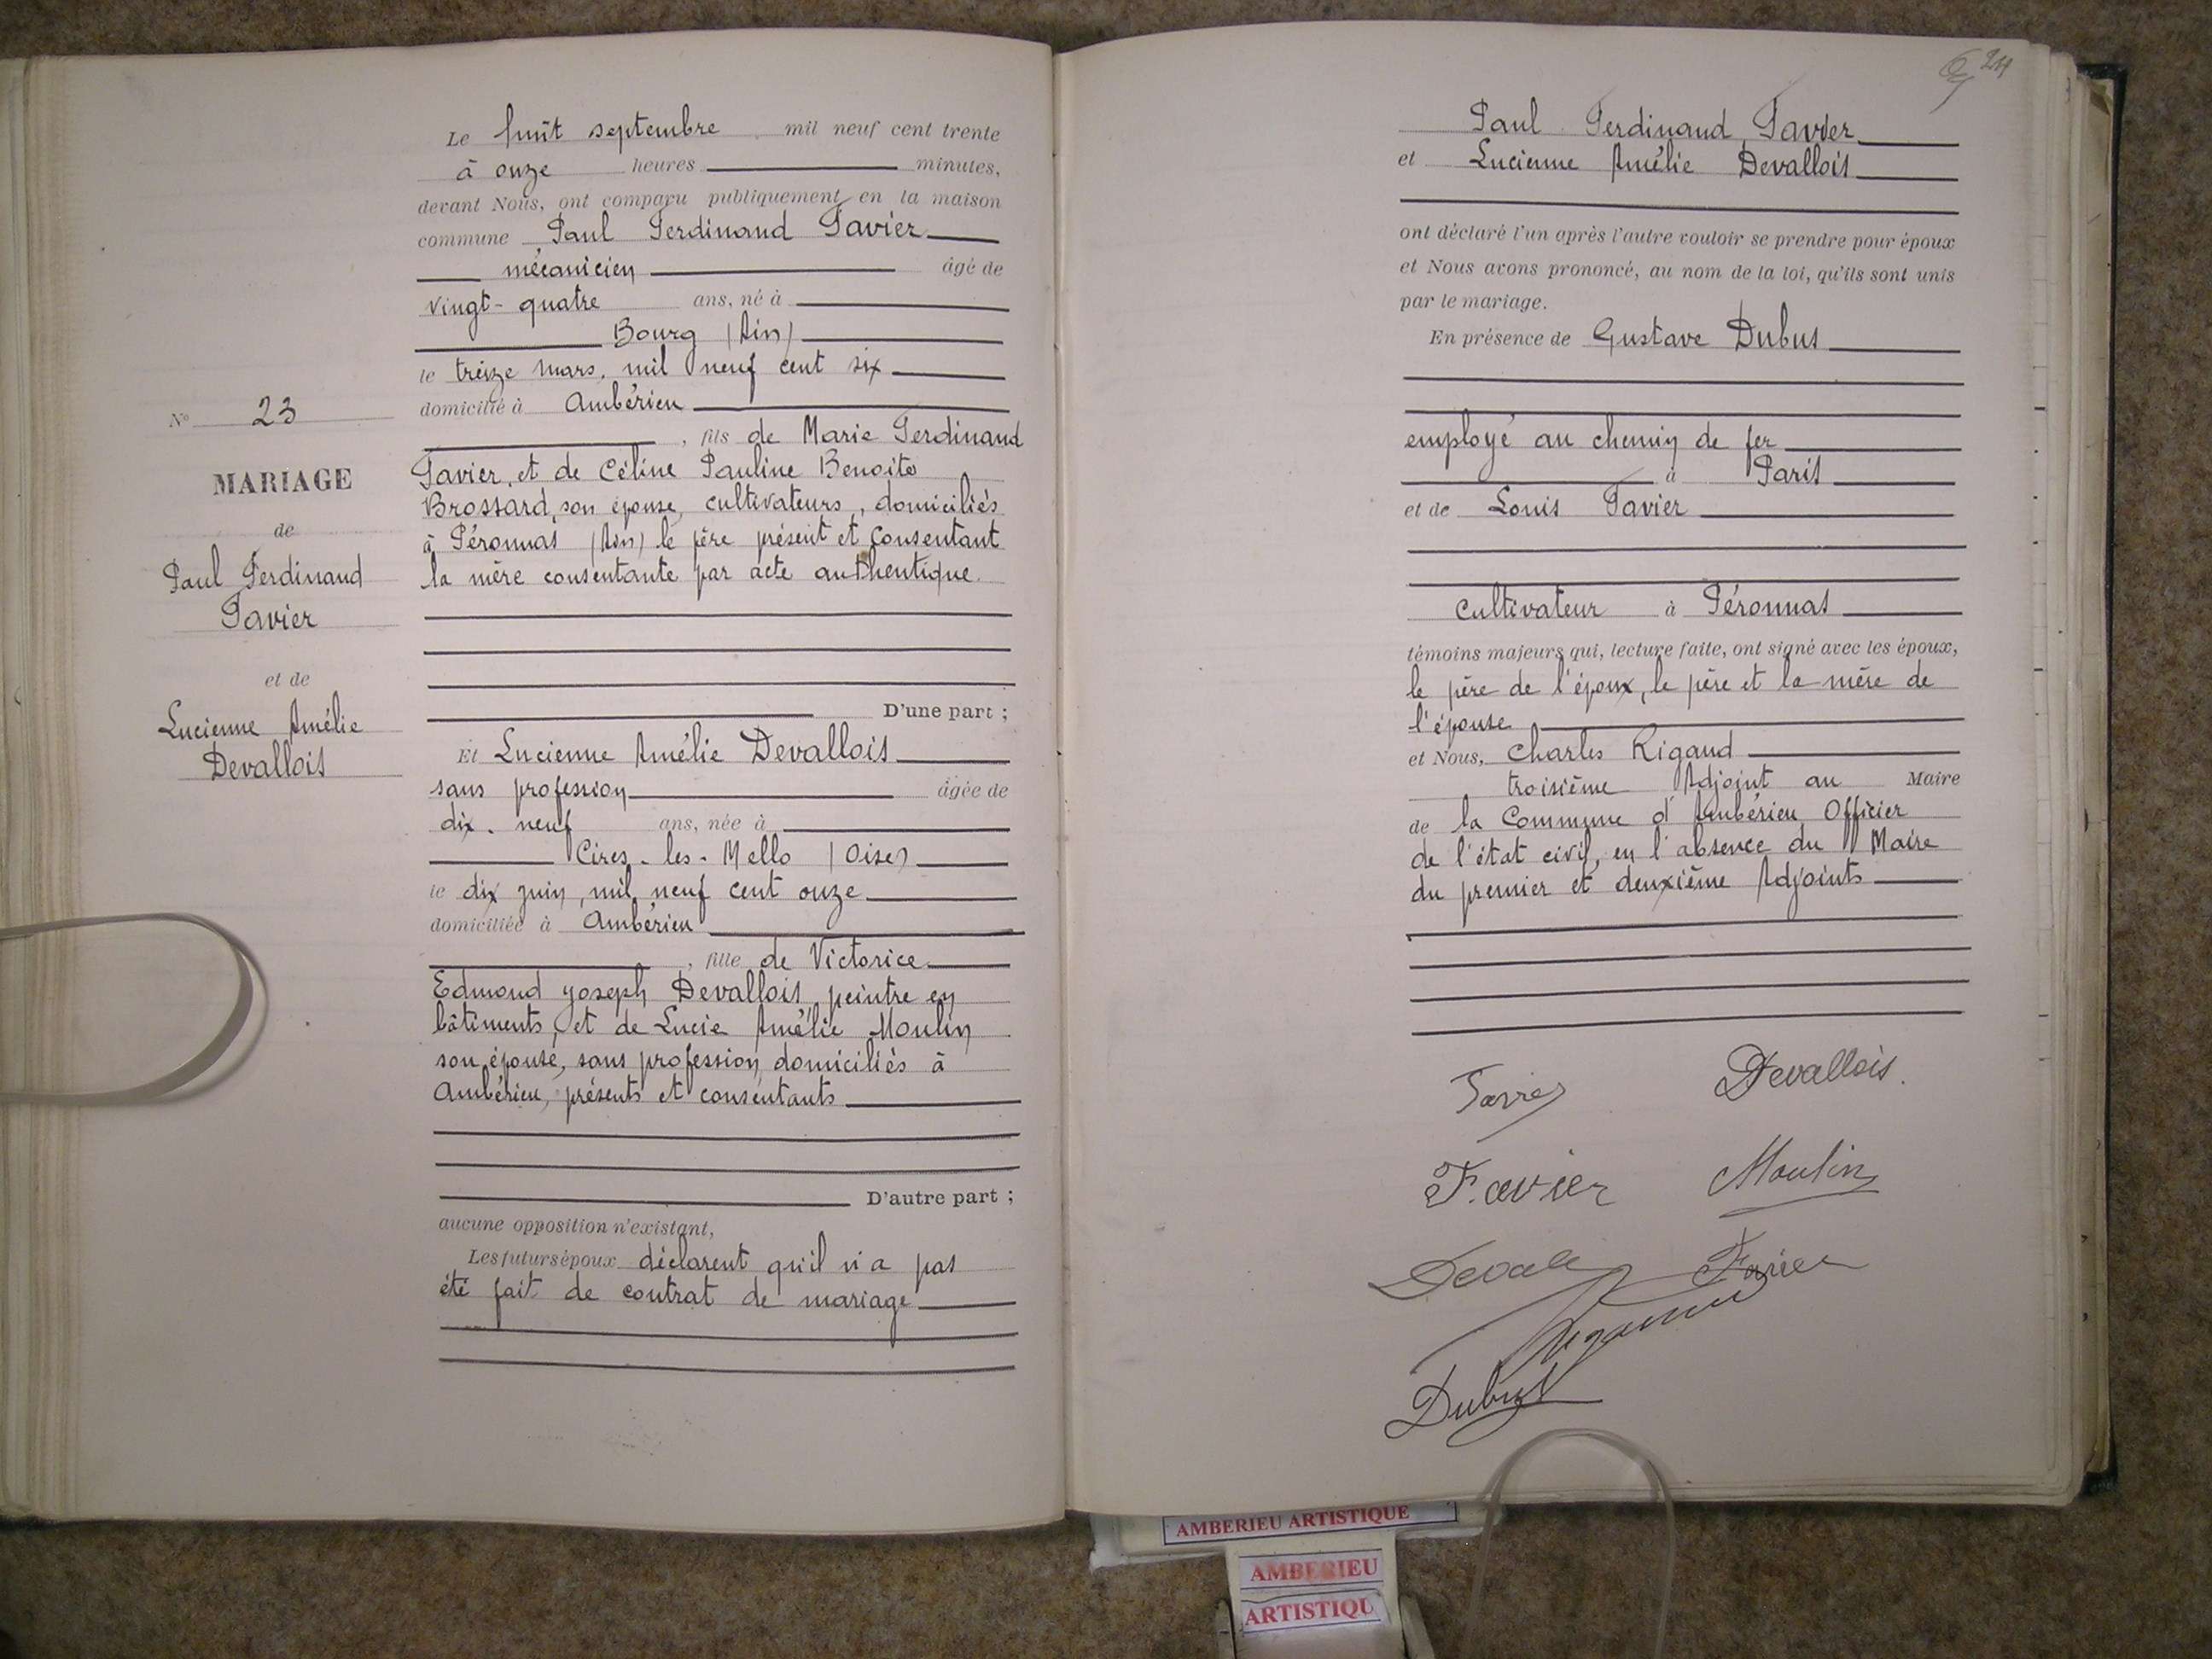 Le huit septembre mil neuf cent trente
à onze heures minutes,
devant Nous, ont comparu publiquement en la maison
commune Paul Ferdinand Favier
mécanicien âgé de
vingt-quatre ans, né à
Bourg (Ain)
le treize mars, mil neuf cent six
domicilié à Ambérieu
, fils de Marie Ferdinand
Favier, et de Céline Pauline Benoite
Brossard, son épouse, cultivateurs, domiciliés
à Péronnas (Ain) le père présent et consentant
la mère consentante par acte authentique.
D'une part ;
Et Lucienne Amélie Devallois
sans profession âgée de
dix-neuf ans, née à
Cires-les-Mello (Oise)
le dix juin, mil neuf cent onze
domiciliée à Ambérieu
, fille de Victorice
Edmond Joseph Devallois, peintre en
bâtiments, et de Lucie Amélie Moulin
son épouse, sans profession domiciliés à
Ambérieu, présents et consentants
D'autre part ;
aucune opposition n'existant,
Les futurs époux déclarent qu'il n'a pas
été fait de contrat de mariage
No 23
MARIAGE
de
Paul Ferdinand
Favier
et de
Lucienne Amélie
Devallois
24
Paul Ferdinand Favier
et Lucienne Amélie Devallois
ont déclaré l'un après l'autre vouloir se prendre pour époux
et Nous avons prononcé, au nom de la loi, qu'ils sont unis
par le mariage.
En présence de Gustave Dubus
employé au chemin de fer
à Paris
et de Louis Favier
cultivateur à Péronnas
témoins majeurs qui, lecture faite, ont signé avec les époux,
le père de l'époux, le père et la mère de
l'épouse
et Nous, Charles Rigaud
troisième Adjoint au Maire
de la Commune d'Ambérieu Officier
de l'état civil, en l'absence du Maire
du premier et deuxième Adjoints
Favier Devallois.
Favier Moulin
Favier
Dubus
AMBERIEU ARTISTIQUE
AMBERIEU
ARTISTIQU